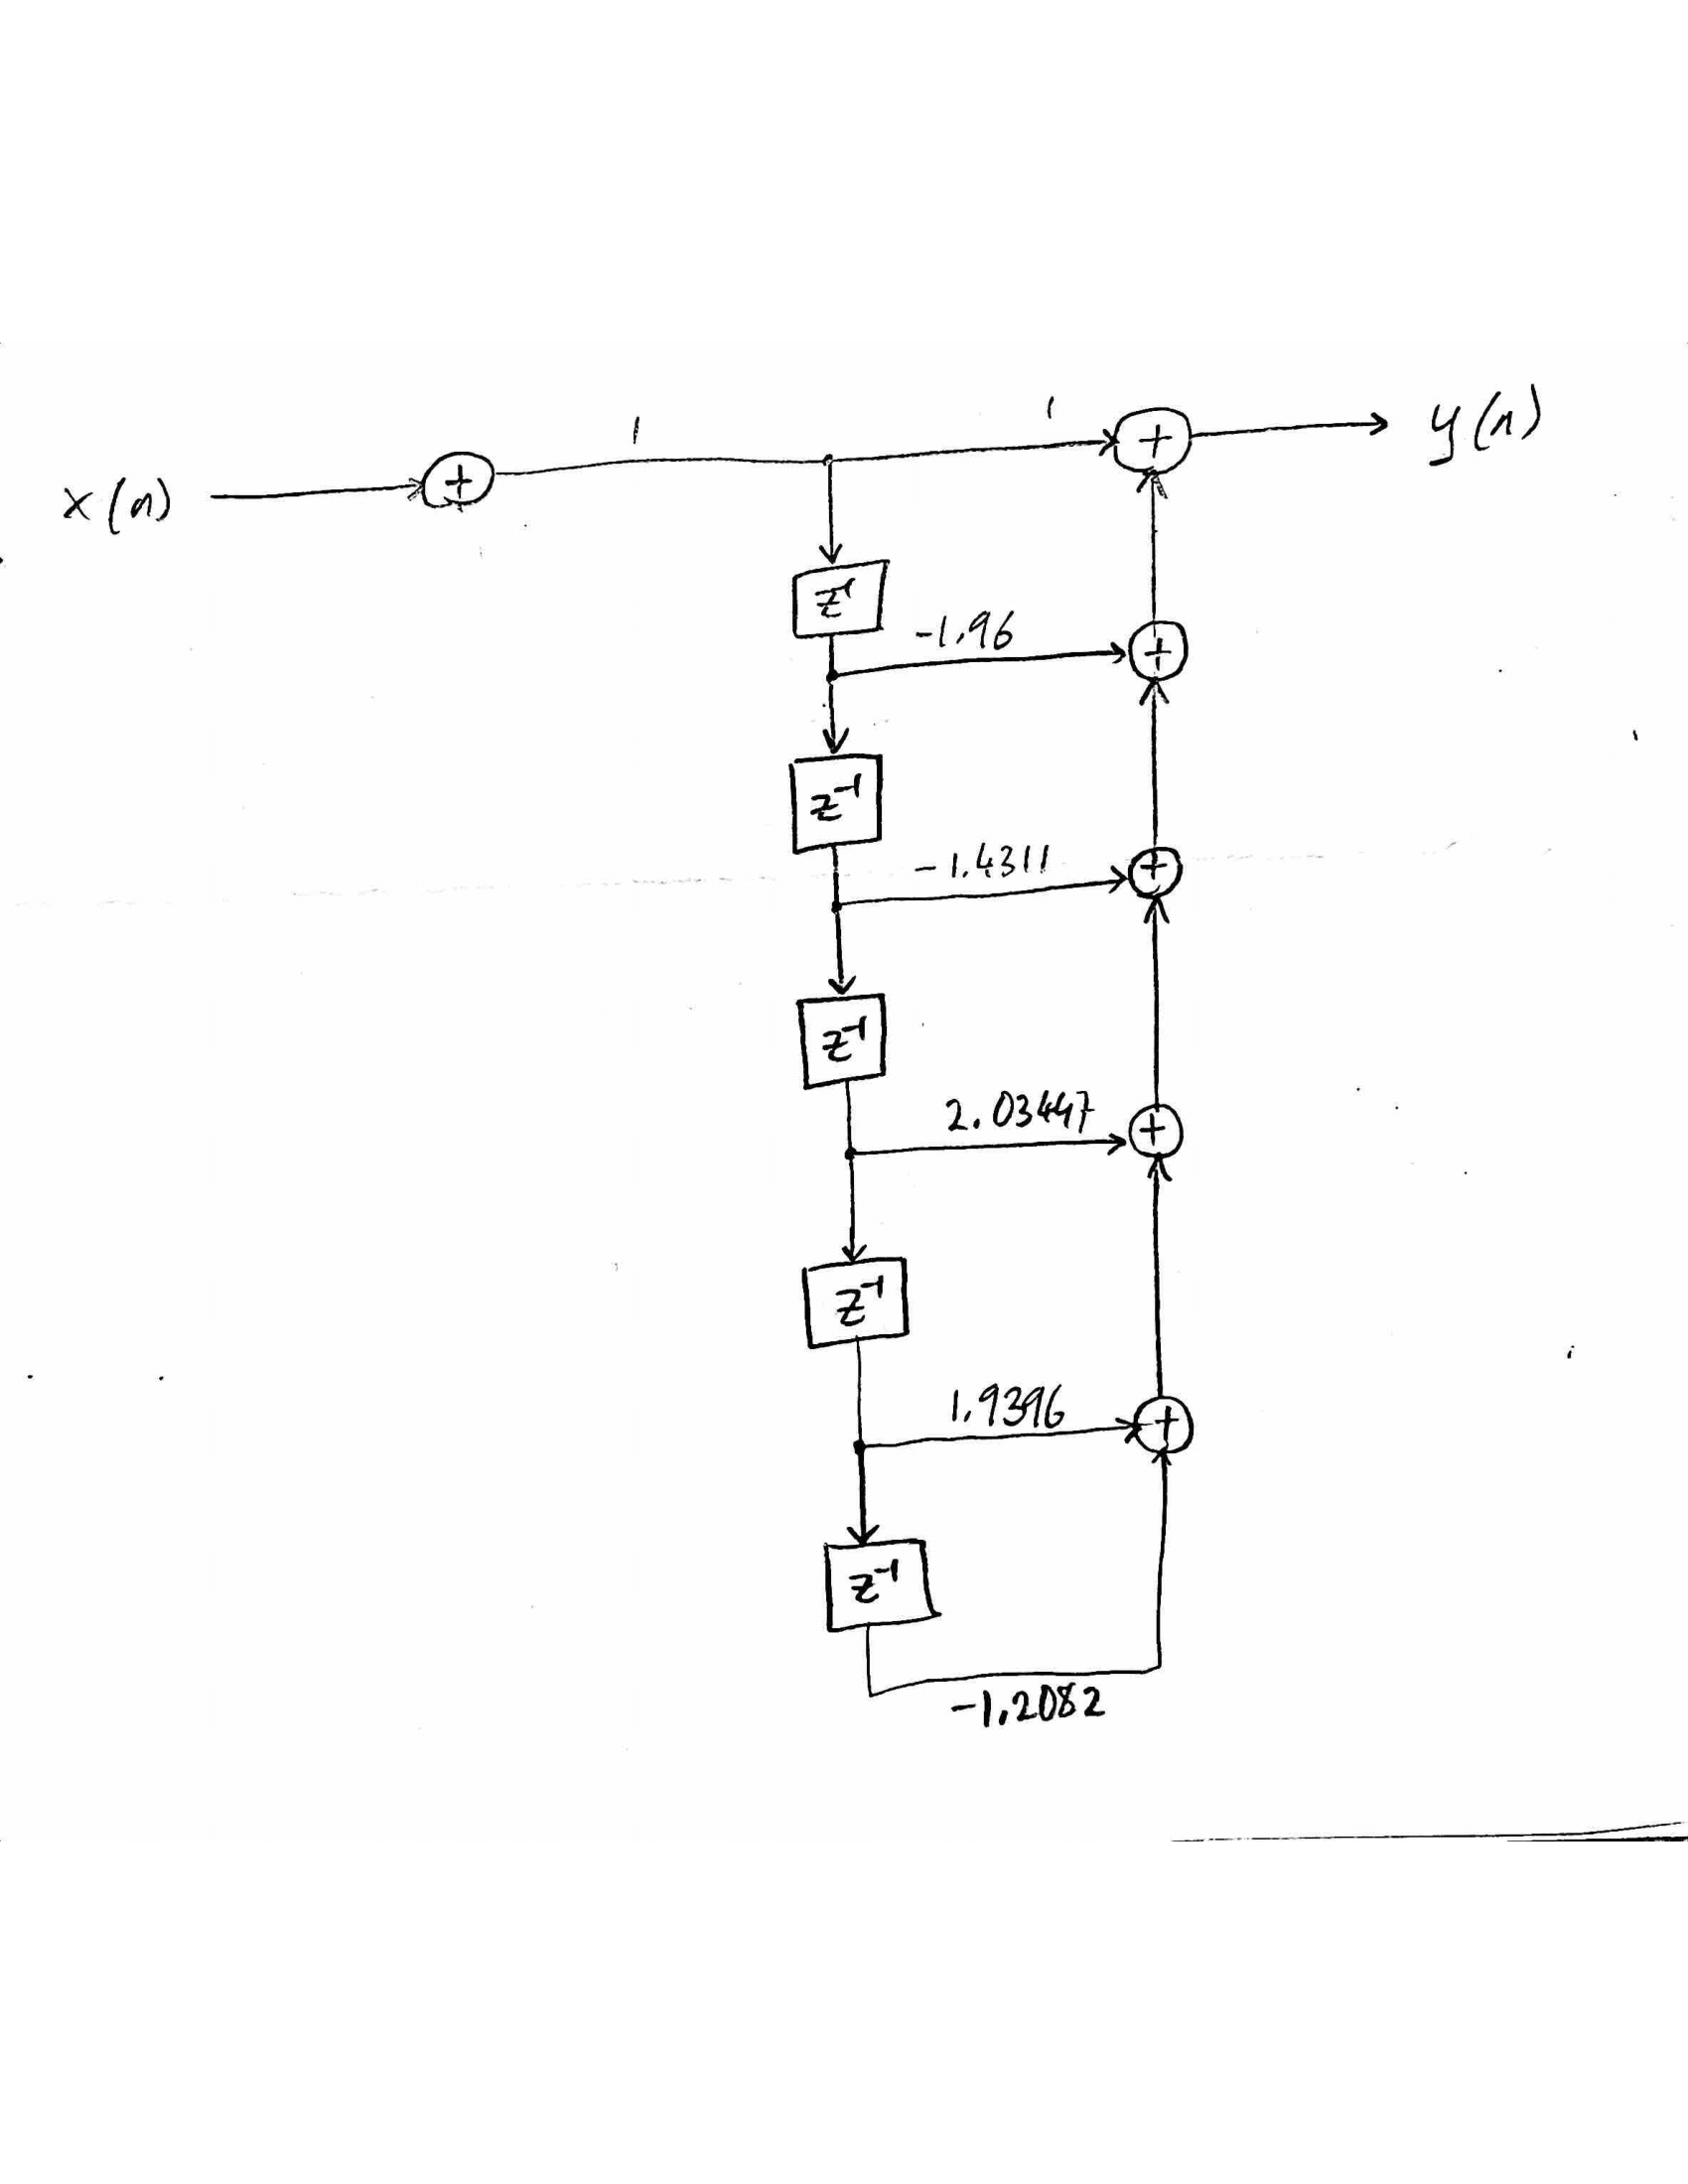 1 1 y(n)
x(n) + +
z⁻¹
-1.96 +
z⁻¹
-1.4311 +
z⁻¹
2.03447 +
z⁻¹
1.9396 +
z⁻¹
-1.2082